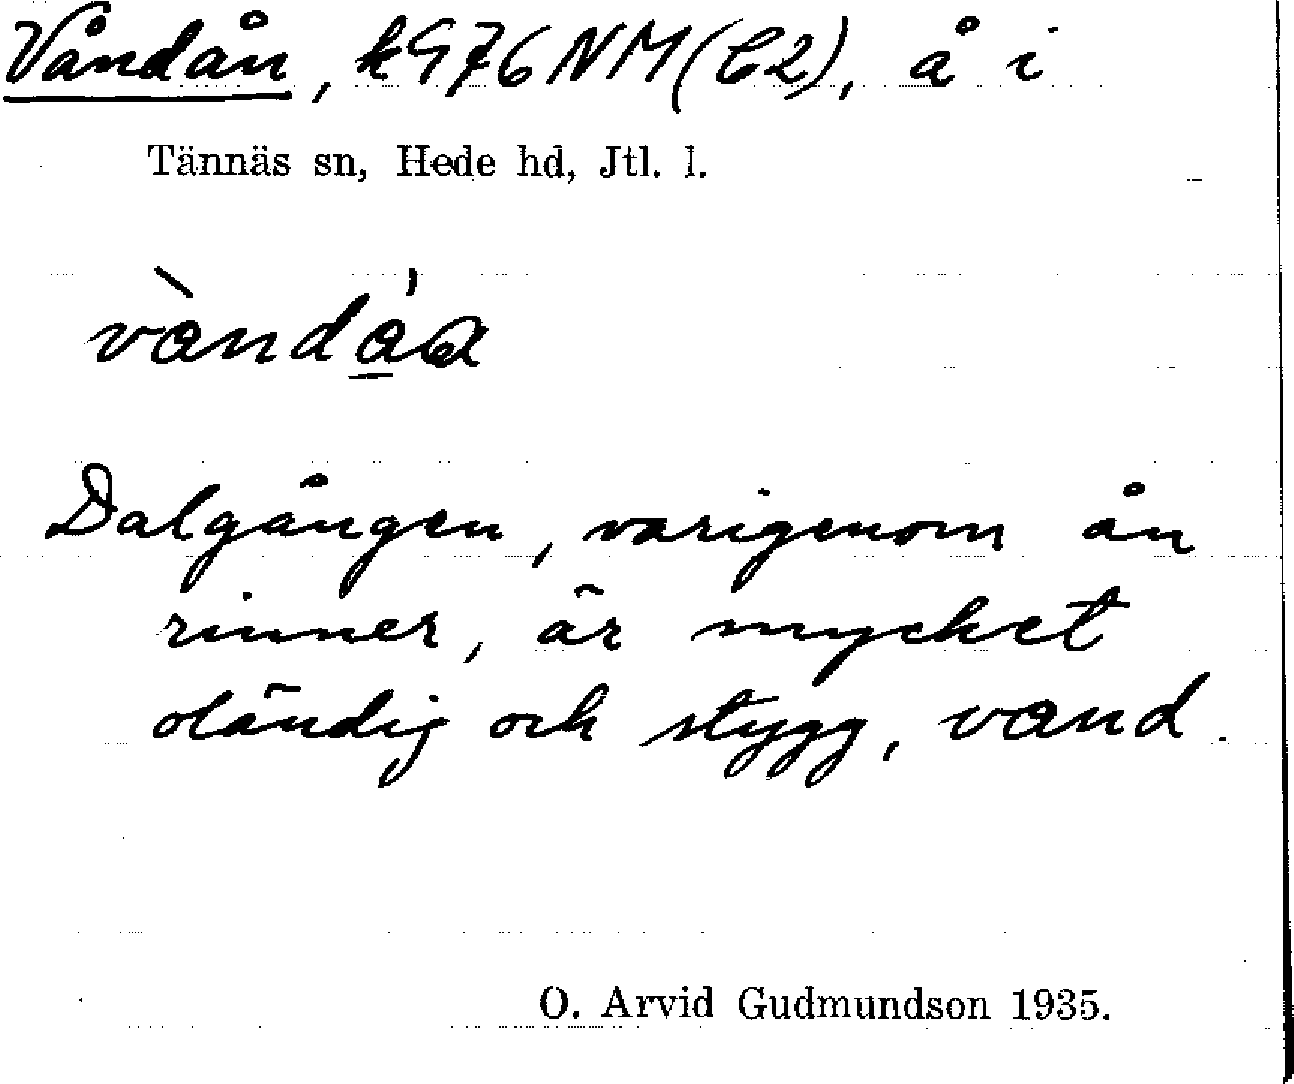 Våndån, k976NM(C2), å i
Tännäs sn, Hede hd, Jtl. l.
vàndá̱a
Dalgången, varigenom ån
rinner, är mycket
oländig och stygg, vand.
O. Arvid Gudmundson 1935.